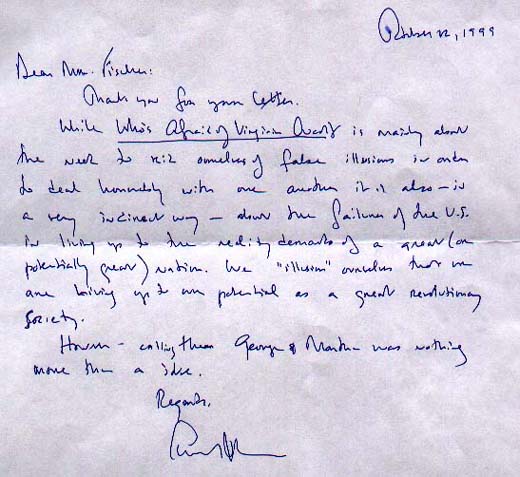 October 12, 1999
Dear Mr. Fischer:
Thank you for your letter.
While Who's Afraid of Virginia Woolf is mainly about
the need to rid ourselves of false illusions in order
to deal honestly with one another it is also – in
a very indirect way – about the failure of the U.S.
in living up to the reality demands of a great (or
potentially great) nation. We "illusion" ourselves that we
are living up to our potential as a great revolutionary
society.
However – calling them George & Martha was nothing
more than a joke.
Regards,